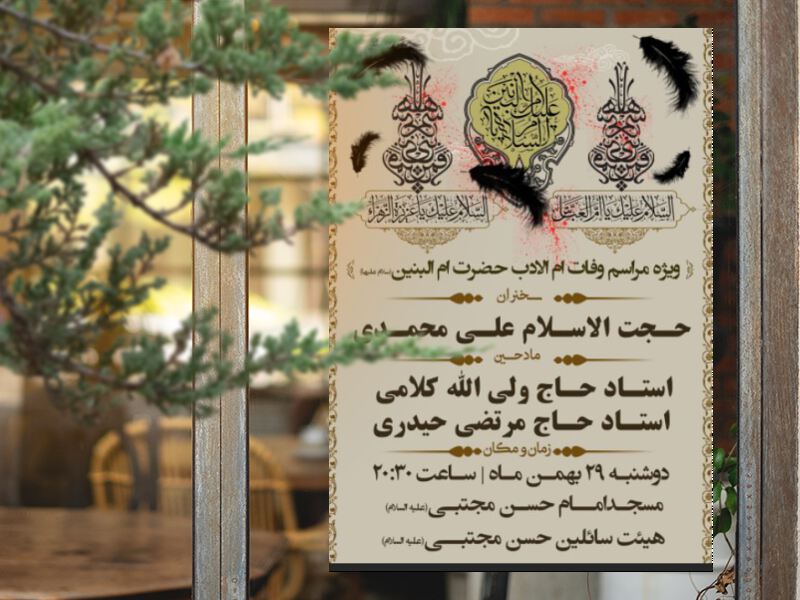 السلام علیک یا ام العباس
السلام علیک یا عزیزة الزهراء
ویژه مراسم وفات ام الادب حضرت ام البنین (سلام علیها)
سخنران
حجت الاسلام علی محمدی
مادحین
استاد حاج ولی الله کلامی
استاد حاج مرتضی حیدری
زمان و مکان
دوشنبه ۲۹ بهمن ماه | ساعت ۲۰:۳۰
مسجد امام حسن مجتبی (علیه السلام)
هیئت سائلین حسن مجتبی (علیه السلام)